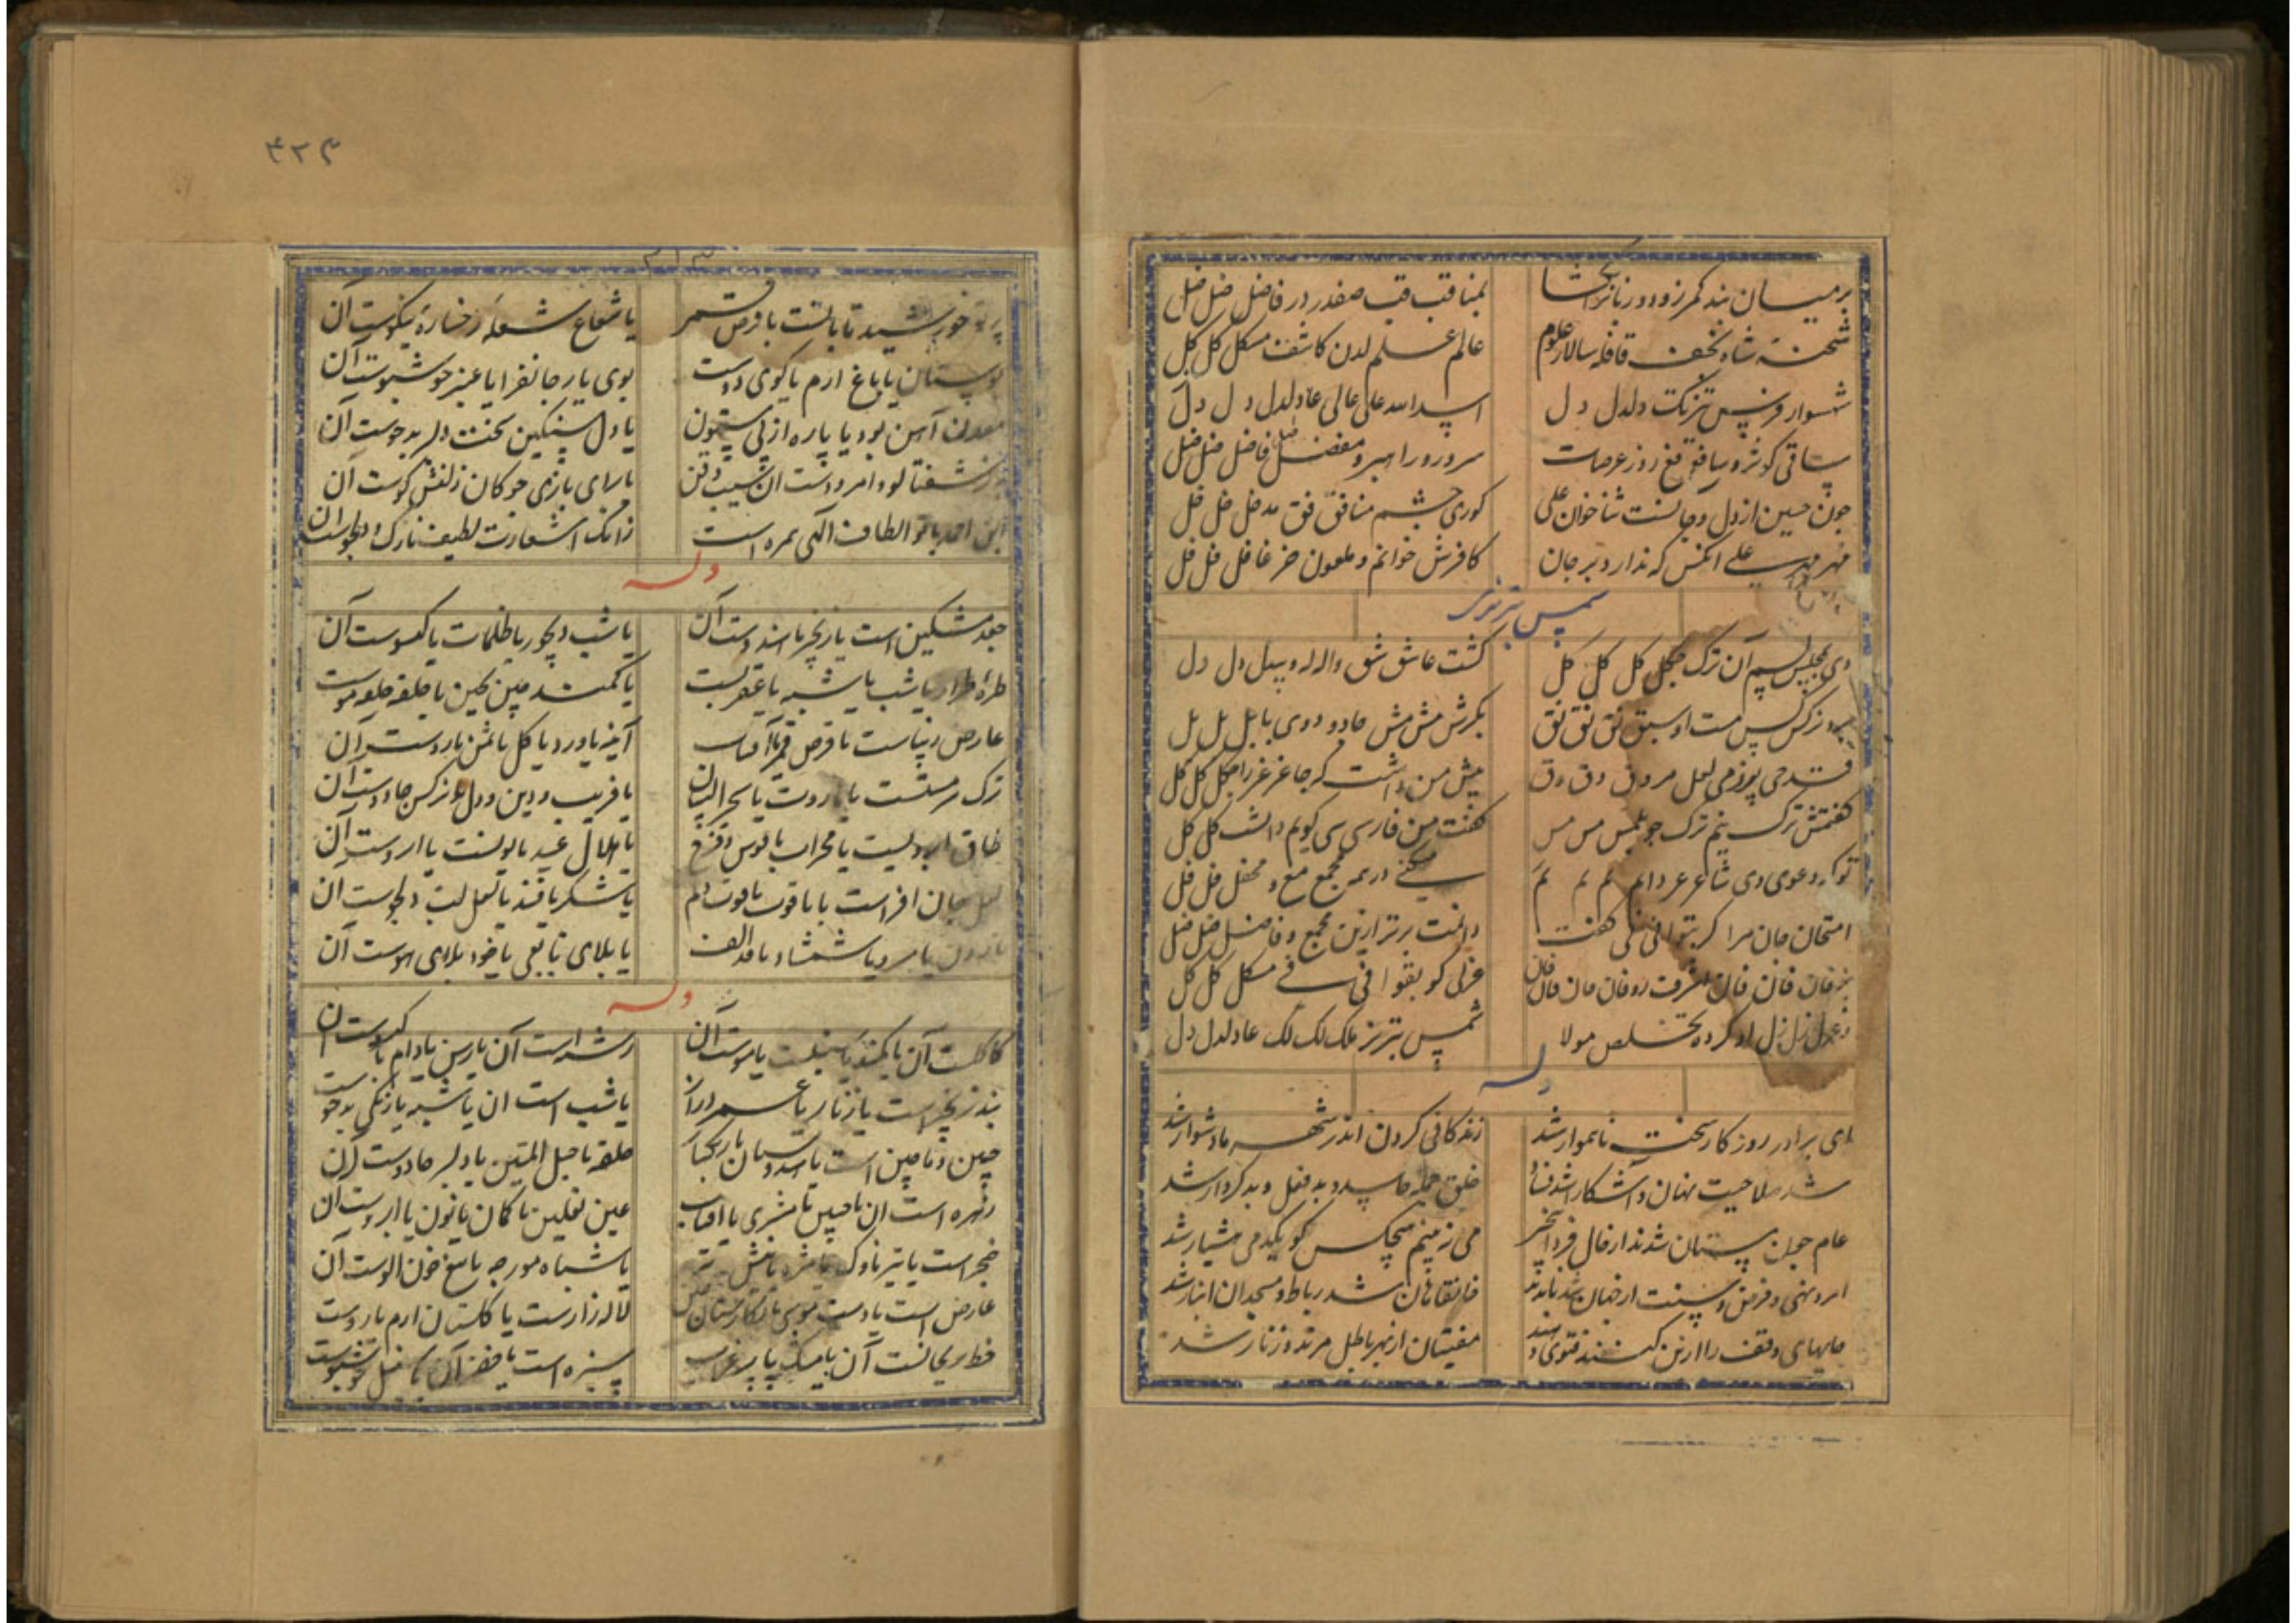 بر میان بند کمر زود و زنار
بمناقب قب صفدر در فاضل ضل ضل
شحنه شاه نجف قافله سالار علوم
عالم علم لدن کاشف مشکل کل کل
شهسوار فرس دلدل دل
اسدالله علی عالی عادل دل دل دل
ساقی کوثر و روز عرصات
سرور و راهبر و مفضل فاضل ضل ضل ضل
چون حسین از دل و جانست ثناخوان علی
کوری چشم منافق فق
مهر علی انکس که ندارد بر جان
کافرش خوانم و ملعون خر غافل فل فل
شمس تبریزی
دی بمجلس آن ترک چکل کل کل کل
گشت عاشق شق واله و بیدل دل دل
نرکس مست او سبق نق نق نق
بکرش مش مش جادوی بابل بل بل
قدحی پر ز می لعل مروق وق وق
پیش من داشت که جا غر غر را کل کل کل
گفتمش ترک نیم ترک چو مس مس
گفت من فارسی سی گویم دانست کل کل
تو که دعوی وی شاعر عر دانم نم نم نم
میکنی در همه مجمع مع و محفل فل فل
امتحان جان مرا گر بتوانی نی گفت
دانمت برتر ازین مجمع و فاضل ضل ضل
غزلی گو بقوافی فی مشکل کل کل
غزل زل زل او کرده تخلص مولا
شمس تبریز ملک لک لک عادل دل دل
وله
ای برادر روزکار سخت ناهموار شد
زندکانی کردن اندر شهر ما دشوار شد
شد صلاحیت نهان و آشکارا شد فساد
خلق جمله حاسد و بد فعل و بدکردار شد
عام
می نبینم هیچکس کو یکدمی هشیار شد
امر و نهی و فرض و سنت از میان
خانقاهان شد رباط و مسجدان انبار شد
مالهای وقف را کنند فتوی
مفتیان از بهر باطل مرتد و زنار شد
۴۲۴
۳۱۳
پرتو خورشید تابانست یا قرص قمر
یا شعاع شعلهٔ رخسارهٔ نیکوست آن
بوستان یا باغ ارم یا کوی دوست
بوی یار جانفزا یا عنبر خوشبوست آن
معدن آهن بود یا پاره از بیستون
یا دل سنگین سخت دلبر بدخوست آن
یا برای بازی چوکان زلفش کوست آن
این احمد یا تو الطاف الهی همره است
زانک اشعارت لطیف و نازک و دلجوست آن
وله
جعد مشکین است یا زنجیر یا هندوست آن
یا شب دیجور یا ظلمات یا گیسوست آن
طرهٔ طرار یا شب یا شبه یا عقربست
یا کمند چین بچین یا حلقه حلقه موست
عارض زیباست یا قرص قمر یا آفتاب
آینه یا ورد یا کل یا سمن یا روست آن
ترک سرمستست یا هاروت یا سحر البیان
یا فریب دین و دل یا نرکس جادوست آن
طاق ابرویست یا محراب یا قوس قزح
یا هلال عید یا نونست یا ابروست آن
لعل جان افزاست یا یاقوت یا قوت دلم
یا شکر یا قند یا لعل لب دلجوست آن
یا سرو یا شمشاد یا قد الف
یا بلای ناگهی یا خود بلای اوست آن
وله
کاکلست آن یا کمند یا سنبلست یا موست آن
رشته است آن یا رسن یا دام یا گیسوست آن
بند زنجیر است یا زنار یا عمر دراز
یا شب است ان یا شبه یا زنگی بدخوست
چین و ماچین است یا هندوستان یا زنگبار
حلقه یا حبل المتین یا دلبر جادوست آن
زهره است ان یا جبین یا مشتری یا آفتاب
عین نعلین یا کمان یا نون یا ابروست آن
خنجر است یا تیر ناوک یا مژه یا نیش
یا سپاه مورچه یا تیغ خون آلوست آن
عارض است یا دست موسی یا نکارستان چین
لاله زارست یا گلستان ارم یا روست
خط ریحانست آن یا مشک یا پر غراب
سبزه است یا خضر آن یا سنبل خوشبوست